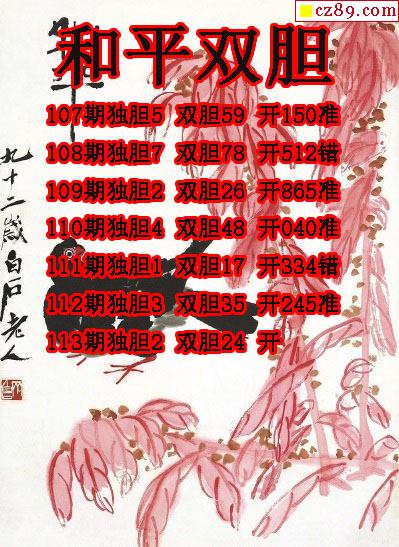 cz89.com
和平双胆
107期独胆5 双胆59 开150准
108期独胆7 双胆78 开512错
109期独胆2 双胆26 开865准
110期独胆4 双胆48 开040准
111期独胆1 双胆17 开334错
112期独胆3 双胆35 开245准
113期独胆2 双胆24 开
九十二岁白石老人